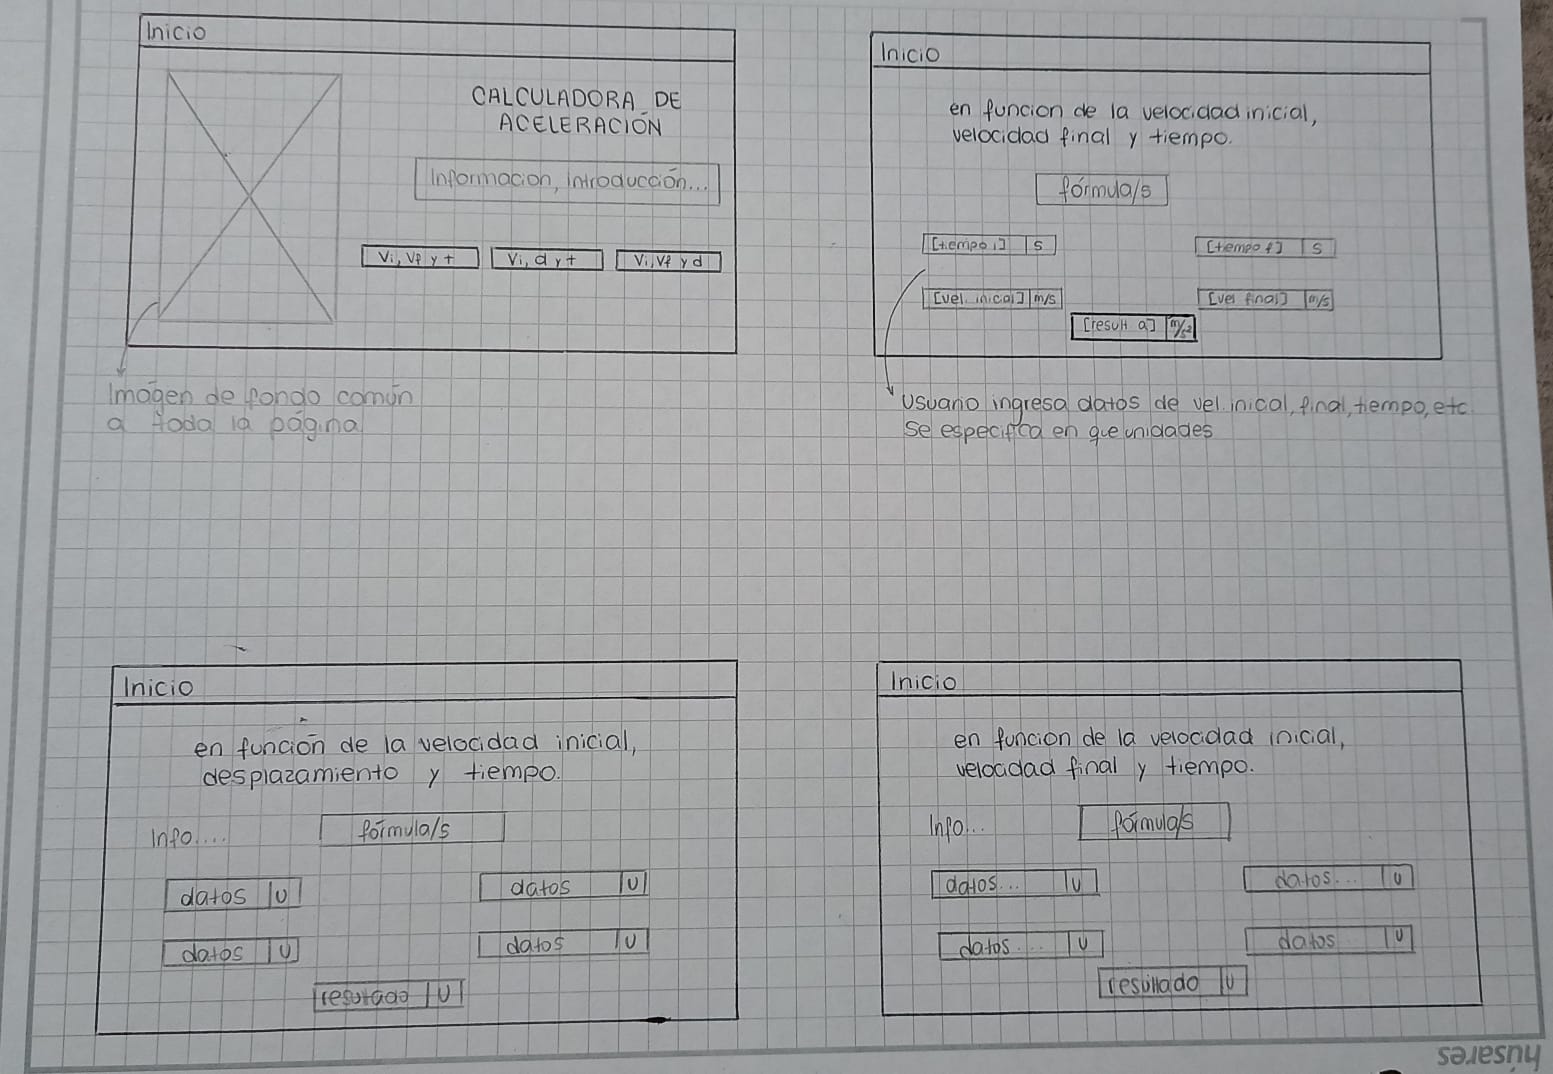 Inicio
CALCULADORA DE
ACELERACIÓN
Información, introducción...
Vi, Vf y t
Vi, d y t
Vi, Vf y d
Imagen de fondo común
a toda la página
Inicio
en funcion de la velocidad inicial,
velocidad final y tiempo.
fórmula/s
[tiempo i] s
[tiempo f] s
[vel. inicial] m/s
[vel final] m/s
[result a] m/s²
Usuario ingresa datos de vel. inicial, final, tiempo, etc
se especifica en que unidades
Inicio
en función de la velocidad inicial,
desplazamiento y tiempo.
Info....
fórmula/s
datos U
datos U
datos U
datos U
resultado U
Inicio
en funcion de la velocidad inicial,
velocidad final y tiempo.
Info...
fórmula/s
datos... U
datos... U
datos... U
datos U
resultado U
húsares